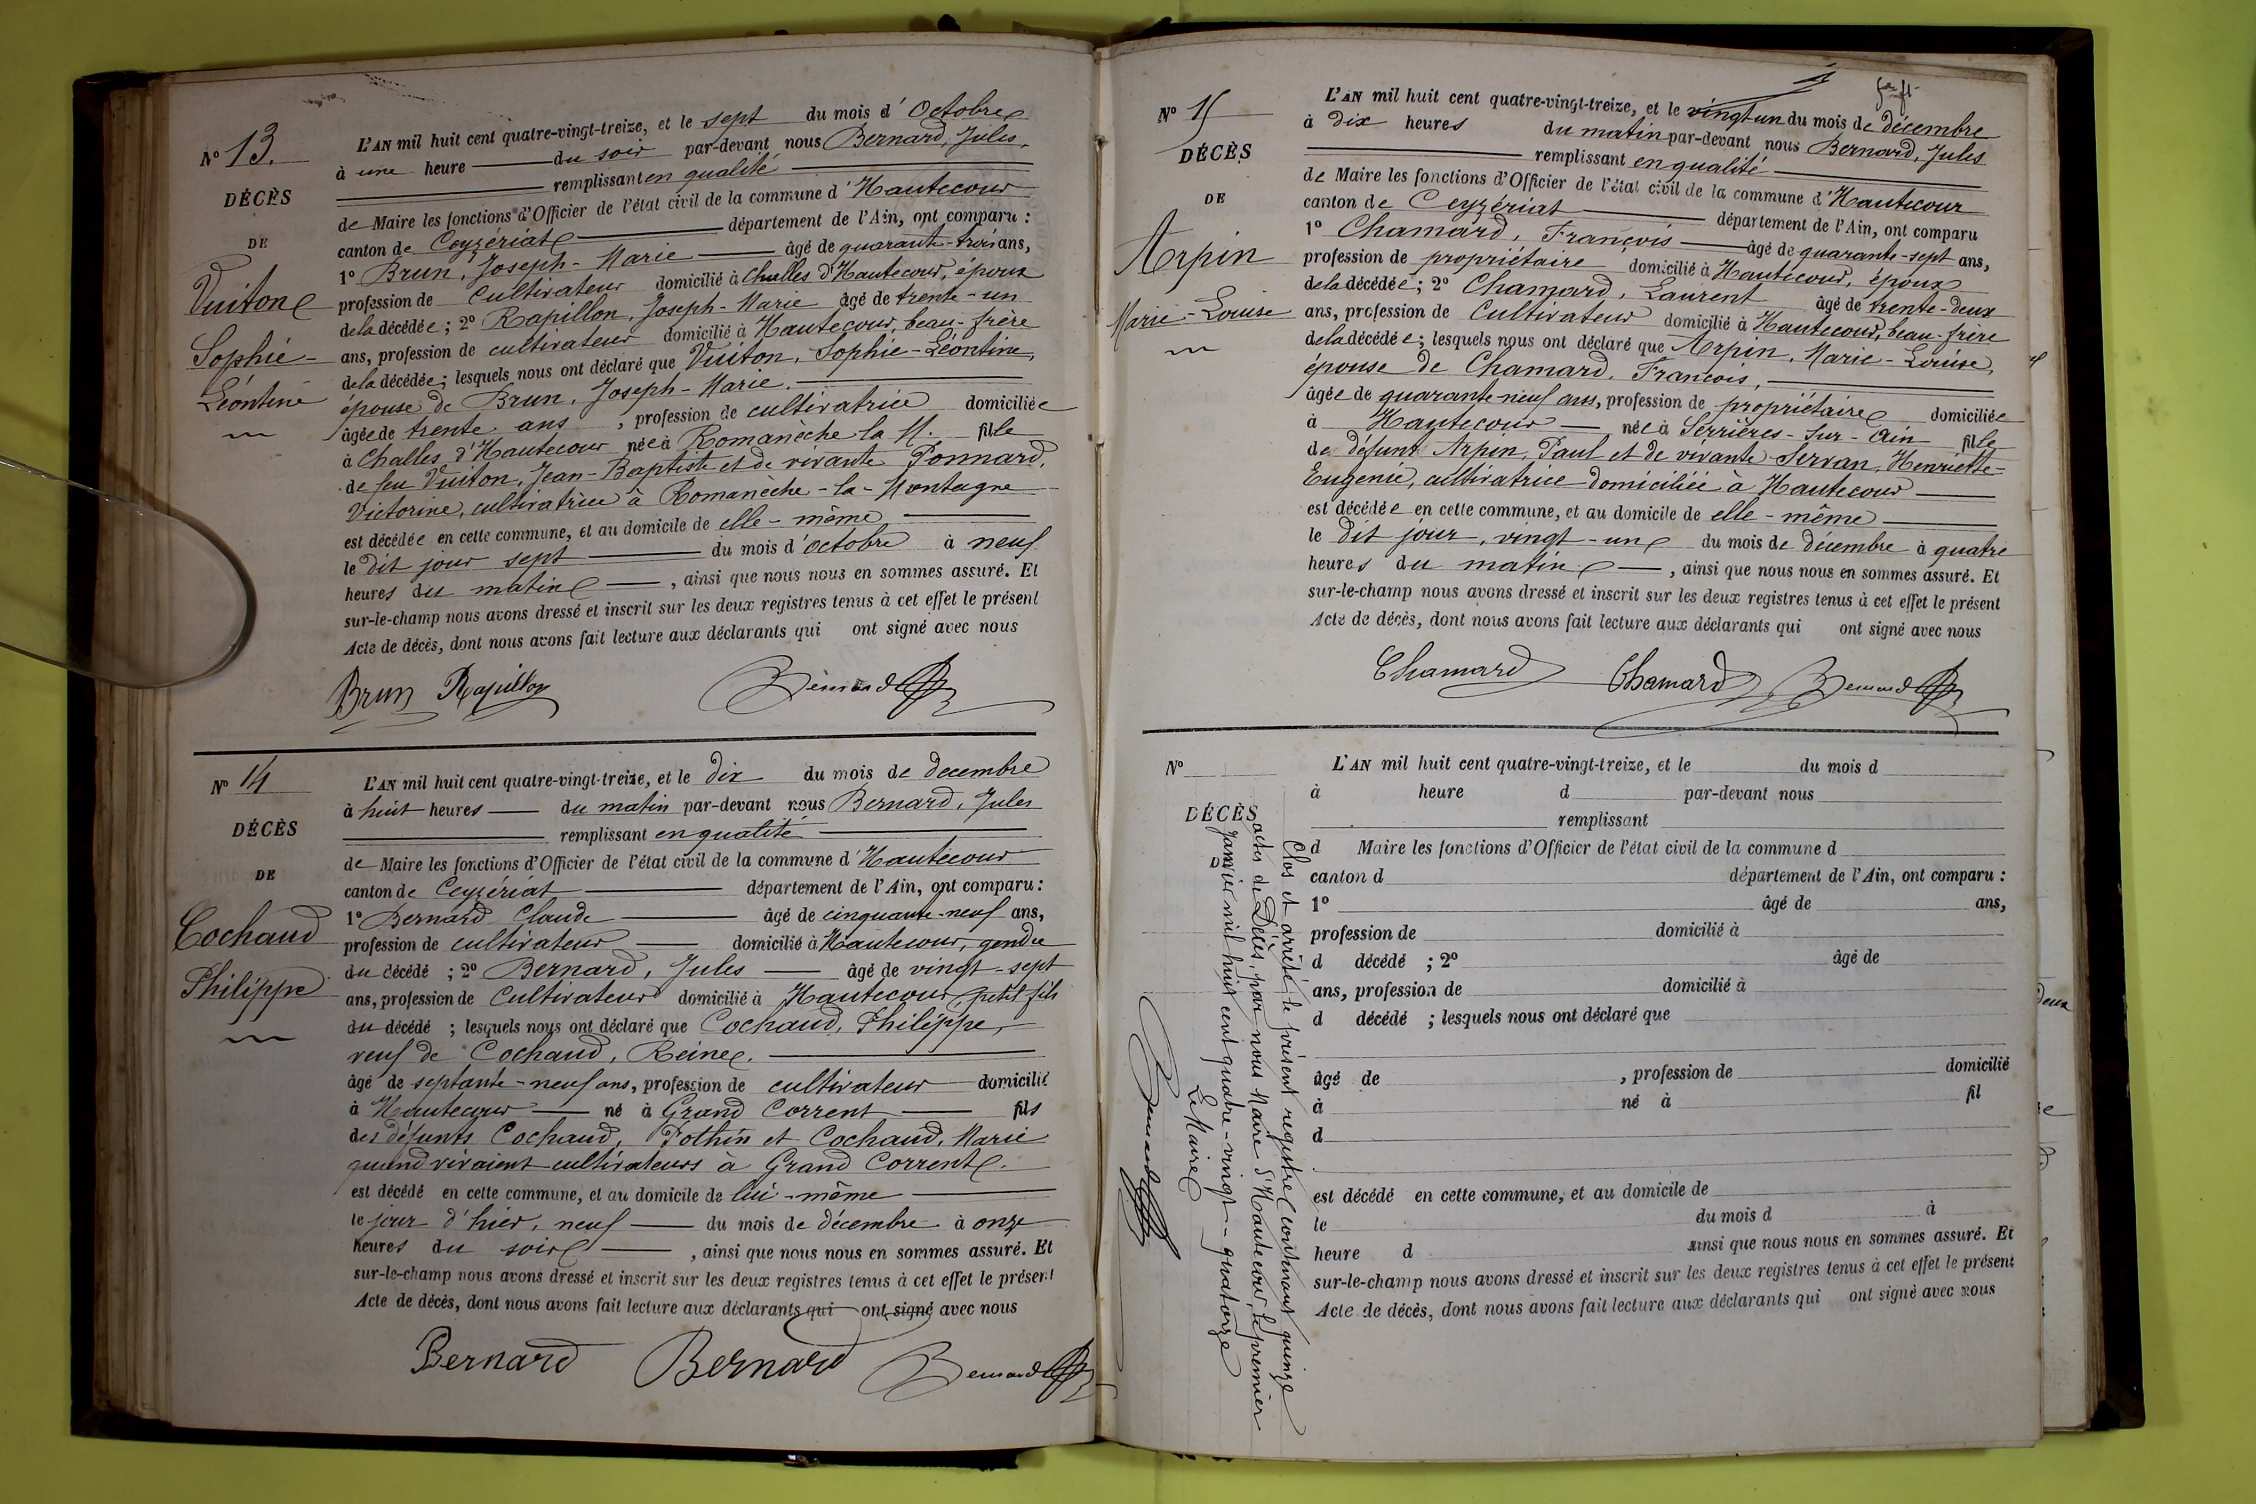 N° 13.
DÉCÈS
DE
Vuiton
Sophie-
Léontine
L'AN mil huit cent quatre-vingt-treize, et le sept du mois d'Octobre
à une heure du soir par-devant nous Bernard, Jules,
remplissant en qualité
de Maire les fonctions d'Officier de l'état civil de la commune d'Hautecour
canton de Ceyzériat département de l'Ain, ont comparu :
1° Brun, Joseph-Marie âgé de quarante-trois ans,
profession de cultivateur domicilié à Challes d'Hautecour, époux
de la décédée ; 2° Rapillon, Joseph-Marie âgé de trente-un
ans, profession de cultivateur domicilié à Hautecour, beau-frère
de la décédée ; lesquels nous ont déclaré que Vuiton, Sophie-Léontine,
épouse de Brun, Joseph-Marie.
âgée de trente ans, profession de cultivatrice domiciliée
à Challes d'Hautecour née à Romanèche la M. fille
de feu Vuiton, Jean-Baptiste et de vivante Ponnard,
Victorine, cultivatrice à Romanèche-la-Montagne
est décédée en cette commune, et au domicile de elle-même
le dit jour sept du mois d'octobre à neuf
heures du matin, ainsi que nous nous en sommes assuré. Et
sur-le-champ nous avons dressé et inscrit sur les deux registres tenus à cet effet le présent
Acte de décès, dont nous avons fait lecture aux déclarants qui ont signé avec nous
Brun Rapillon Bernard
N° 14
DÉCÈS
DE
Cochaud
Philippe
L'AN mil huit cent quatre-vingt-treize, et le dix du mois de decembre
à huit heures du matin par-devant nous Bernard, Jules
remplissant en qualité
de Maire les fonctions d'Officier de l'état civil de la commune d'Hautecour
canton de Ceyzériat département de l'Ain, ont comparu :
1° Bernard Claude âgé de cinquante-neuf ans,
profession de cultivateur domicilié à Hautecour, gendre
du décédé ; 2° Bernard, Jules âgé de vingt-sept
ans, profession de cultivateur domicilié à Hautecour, petit fils
du décédé ; lesquels nous ont déclaré que Cochaud, Philippe,
veuf de Cochaud, Reine.
âgé de septante-neuf ans, profession de cultivateur domicilié
à Hautecour né à Grand Corrent fils
des défunts Cochaud, Pothin et Cochaud, Marie
quand vivaient cultivateurs à Grand Corrent.
est décédé en cette commune, et au domicile de lui-même
le jour d'hier, neuf du mois de décembre à onze
heures du soir, ainsi que nous nous en sommes assuré. Et
sur-le-champ nous avons dressé et inscrit sur les deux registres tenus à cet effet le présent
Acte de décès, dont nous avons fait lecture aux déclarants qui ont signé avec nous
Bernard Bernard Bernard
N° 15
DÉCÈS
DE
Arpin
Marie-Louise
L'AN mil huit cent quatre-vingt-treize, et le vingt un du mois de décembre
à dix heures du matin par-devant nous Bernard, Jules
remplissant en qualité
de Maire les fonctions d'Officier de l'état civil de la commune d'Hautecour
canton de Ceyzériat département de l'Ain, ont comparu
1° Chamard, François âgé de quarante-sept ans,
profession de propriétaire domicilié à Hautecour, époux
de la décédée ; 2° Chamard, Laurent âgé de trente-deux
ans, profession de cultivateur domicilié à Hautecour, beau-frère
de la décédée ; lesquels nous ont déclaré que Arpin, Marie-Louise,
épouse de Chamard, François,
âgée de quarante-neuf ans, profession de propriétaire domiciliée
à Hautecour née à Serrières-sur-Ain fille
de défunt Arpin, Paul et de vivante Servan, Henriette-
Eugenie, cultivatrice domiciliée à Hautecour
est décédée en cette commune, et au domicile de elle-même
le dit jour, vingt-un du mois de décembre à quatre
heures du matin, ainsi que nous nous en sommes assuré. Et
sur-le-champ nous avons dressé et inscrit sur les deux registres tenus à cet effet le présent
Acte de décès, dont nous avons fait lecture aux déclarants qui ont signé avec nous
Chamard Chamard Bernard
N°
DÉCÈS
D
L'AN mil huit cent quatre-vingt-treize, et le du mois d
à heure d par-devant nous
remplissant
d Maire les fonctions d'Officier de l'état civil de la commune d
canton d département de l'Ain, ont comparu :
1° âgé de ans,
profession de domicilié à
d décédé ; 2° âgé de
ans, profession de domicilié à
d décédé ; lesquels nous ont déclaré que
âgé de , profession de domicilié
à né à fil
d
est décédé en cette commune, et au domicile de
le du mois d à
heure d ainsi que nous nous en sommes assuré. Et
sur-le-champ nous avons dressé et inscrit sur les deux registres tenus à cet effet le présent
Acte de décès, dont nous avons fait lecture aux déclarants qui ont signé avec nous
Clos et arrêté le présent registre contenant quinze
actes de Décès, par nous Maire d'Hautecour, le premier
Janvier mil huit cent quatre-vingt-quatorze
Le Maire
Bernard